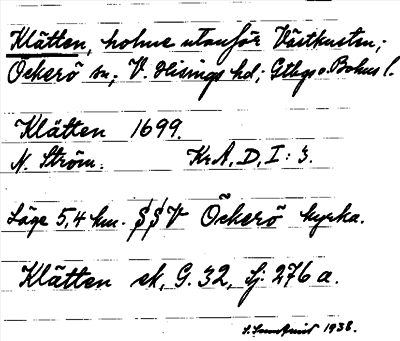 Klätten, holme utanför Västkusten;
Öckerö sn; V. Hisings hd; Gtbgs o. Bohus l.
Klätten 1699.
N. Ström. KrA, D, I: 3.
Läge 5,4 km. SSV Öckerö kyrka.
Klätten sk, G. 32, Sj: 276 a.
1938.